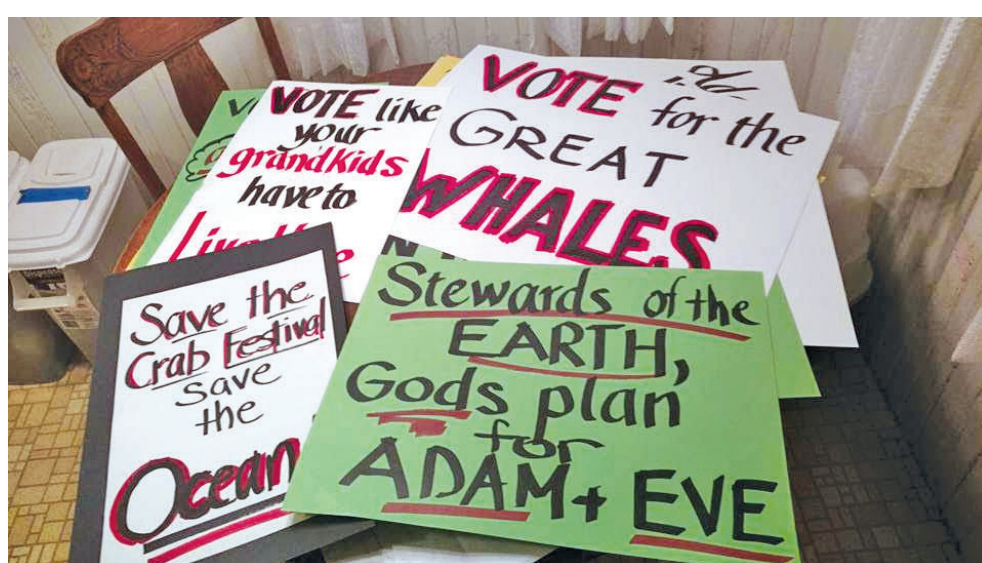 VOTE like
your
grandkids
have to
VOTE
for the
GREAT
WHALES
Save the
Crab Festival
save
the
Ocean
Stewards of the
EARTH,
Gods plan
for
ADAM + EVE